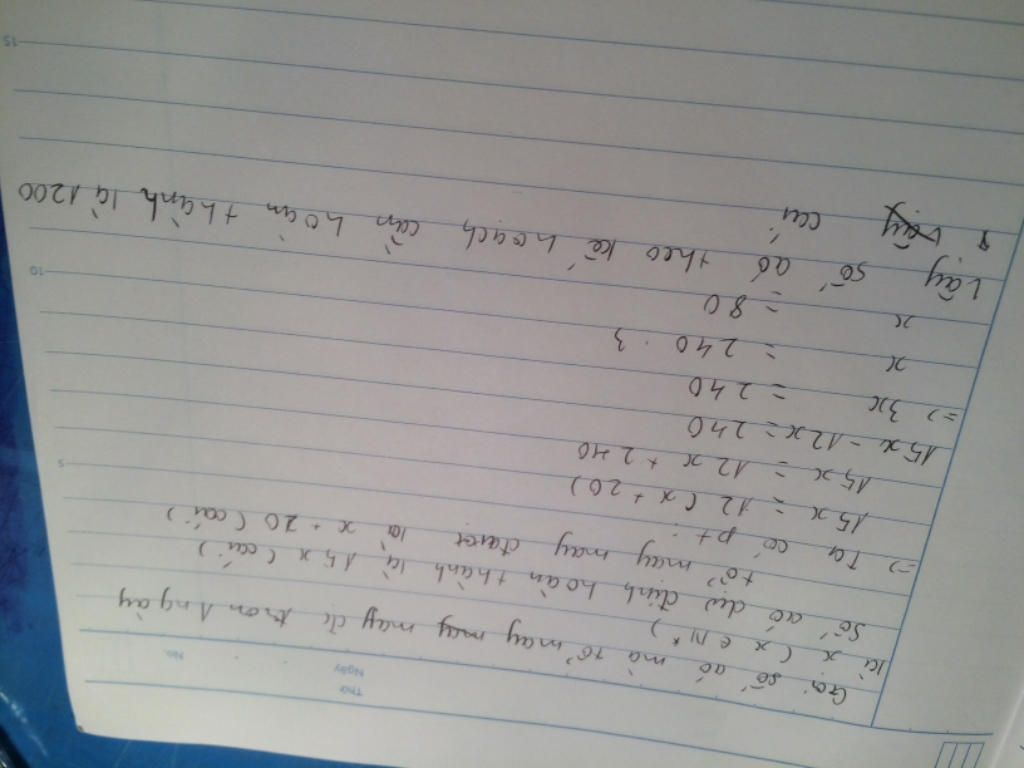 Thứ
Ngày
No.
Gọi số áo mà tổ may may đc tron 1 ngày
là x ( x ∈ N* )
Số áo dự định hoàn thành là 15x ( cái )
tổ may may được là x + 20 ( cái )
=> Ta có pt :
15x = 12 ( x + 20 )
15x = 12x + 240
15x - 12x = 240
=> 3x = 240
x = 240 : 3
x = 80
Vậy số áo theo kế hoạch cần hoàn thành là 1200
cái
5
10
15